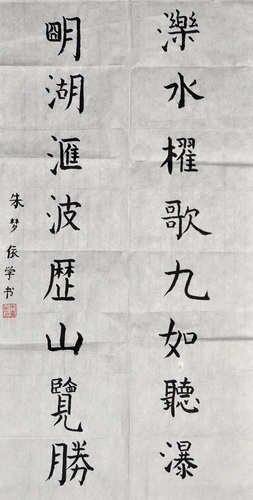 濼水櫂歌九如聽瀑
朙湖滙波歴山覽勝
朱梦依学书